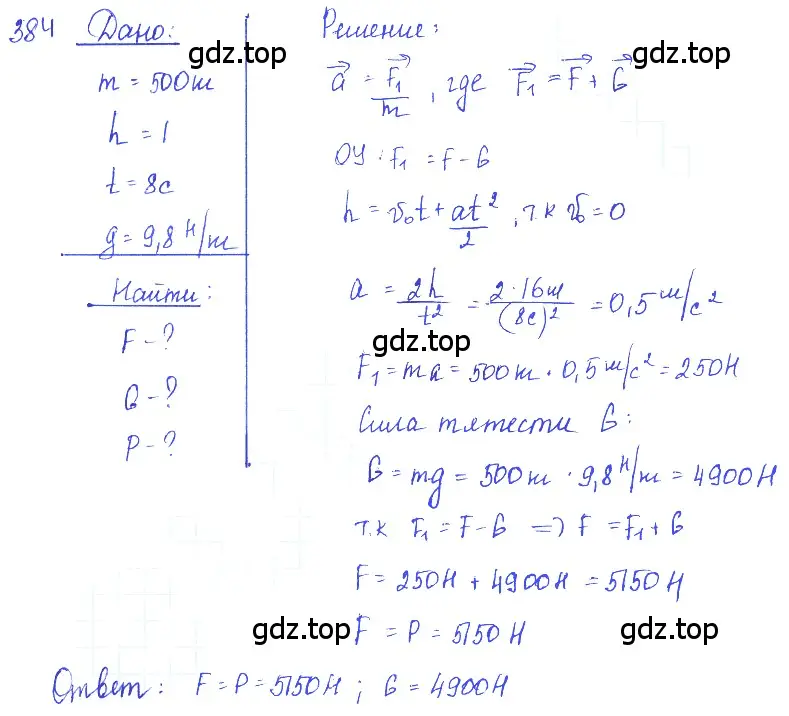 384 Дано:
gdz.top
m = 500 кг
h = 1
t = 8с
g = 9,8 Н/кг
Найти:
F - ?
G - ?
P - ?
Решение:
a⃗ = F⃗₁/m, где F⃗₁ = F⃗ + G⃗
gdz.top
ОУ: F₁ = F - G
h = v₀t + at²/2, т.к v₀ = 0
a = 2h/t² = 2·16м/(8с)² = 0,5 м/с²
gdz.top
F₁ = ma = 500 кг · 0,5 м/с² = 250Н
Сила тяжести G:
G = mg = 500 кг · 9,8 Н/кг = 4900Н
т.к F₁ = F - G => F = F₁ + G
F = 250Н + 4900Н = 5150Н
F = P = 5150Н
gdz.top
gdz.top
Ответ: F = P = 5150Н; G = 4900Н